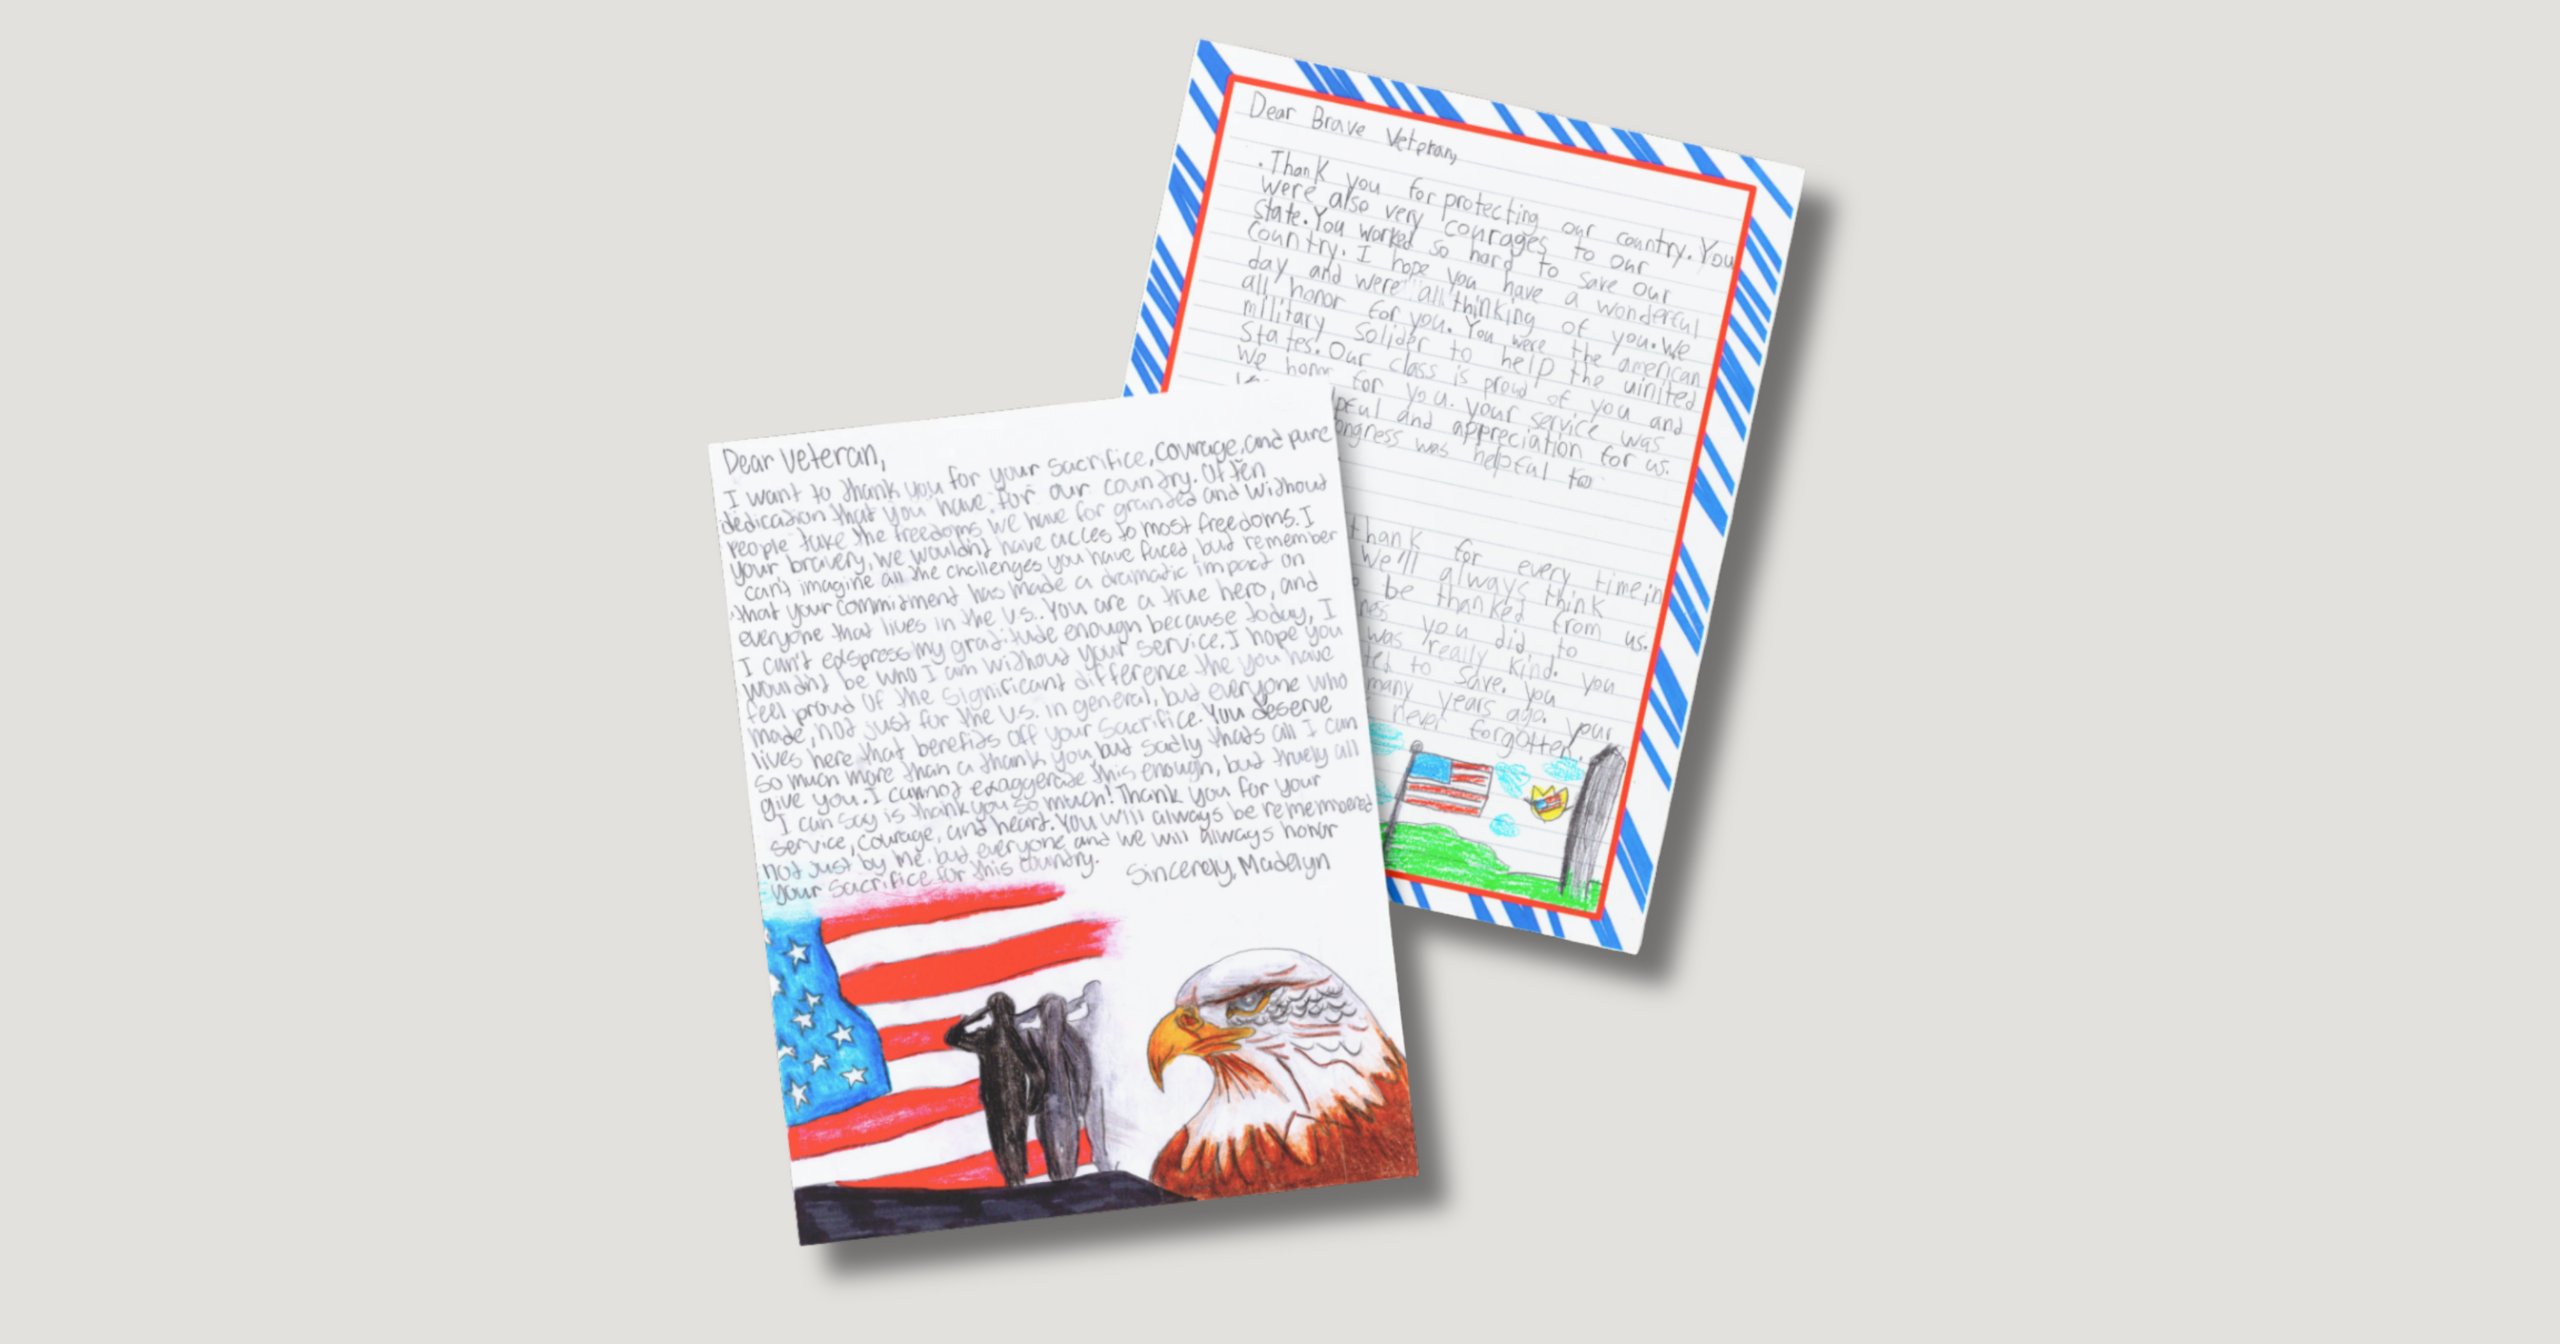 Dear Brave Veteran,
.Thank you for protecting our country. You
were also very courages to our
state. You worked so hard to save our
country. I hope you have a wonderful
day and were all thinking of you. We
all honor for you. You were the american
military solider to help the uinited
States. Our class is proud of you and
we honor for you. your service was
pful and appreciation for us.
ongress was helpful for
thank for every time in
We'll always think
be thanked from us.
ness you did to
was really kind. you
ted to save. you
many years ago. your
never forgotten.
Dear Veteran,
I want to thank you for your sacrifice, courage, and pure
dedication that you have for our country. Often
people take the freedoms we have for granted and without
your bravery, we wouldn't have acces to most freedoms. I
can't imagine all the challenges you have faced, but remember
that your commitment has made a dramatic impact on
everyone that lives in the U.S.. You are a true hero, and
I can't exspress my gratitude enough because today, I
wouldn't be who I am without your service. I hope you
feel proud of the significant difference the you have
made, not just for the U.S. in general, but everyone who
lives here that benefits off your sacrifice. You deserve
so much more than a thank you but sadly thats all I can
give you. I cannot exaggerate this enough, but truely all
I can say is thank you so much! Thank you for your
service, courage, and heart. You will always be remembered
not just by me. but everyone and we will always honor
your sacrifice for this country.
Sincerely, Madelyn